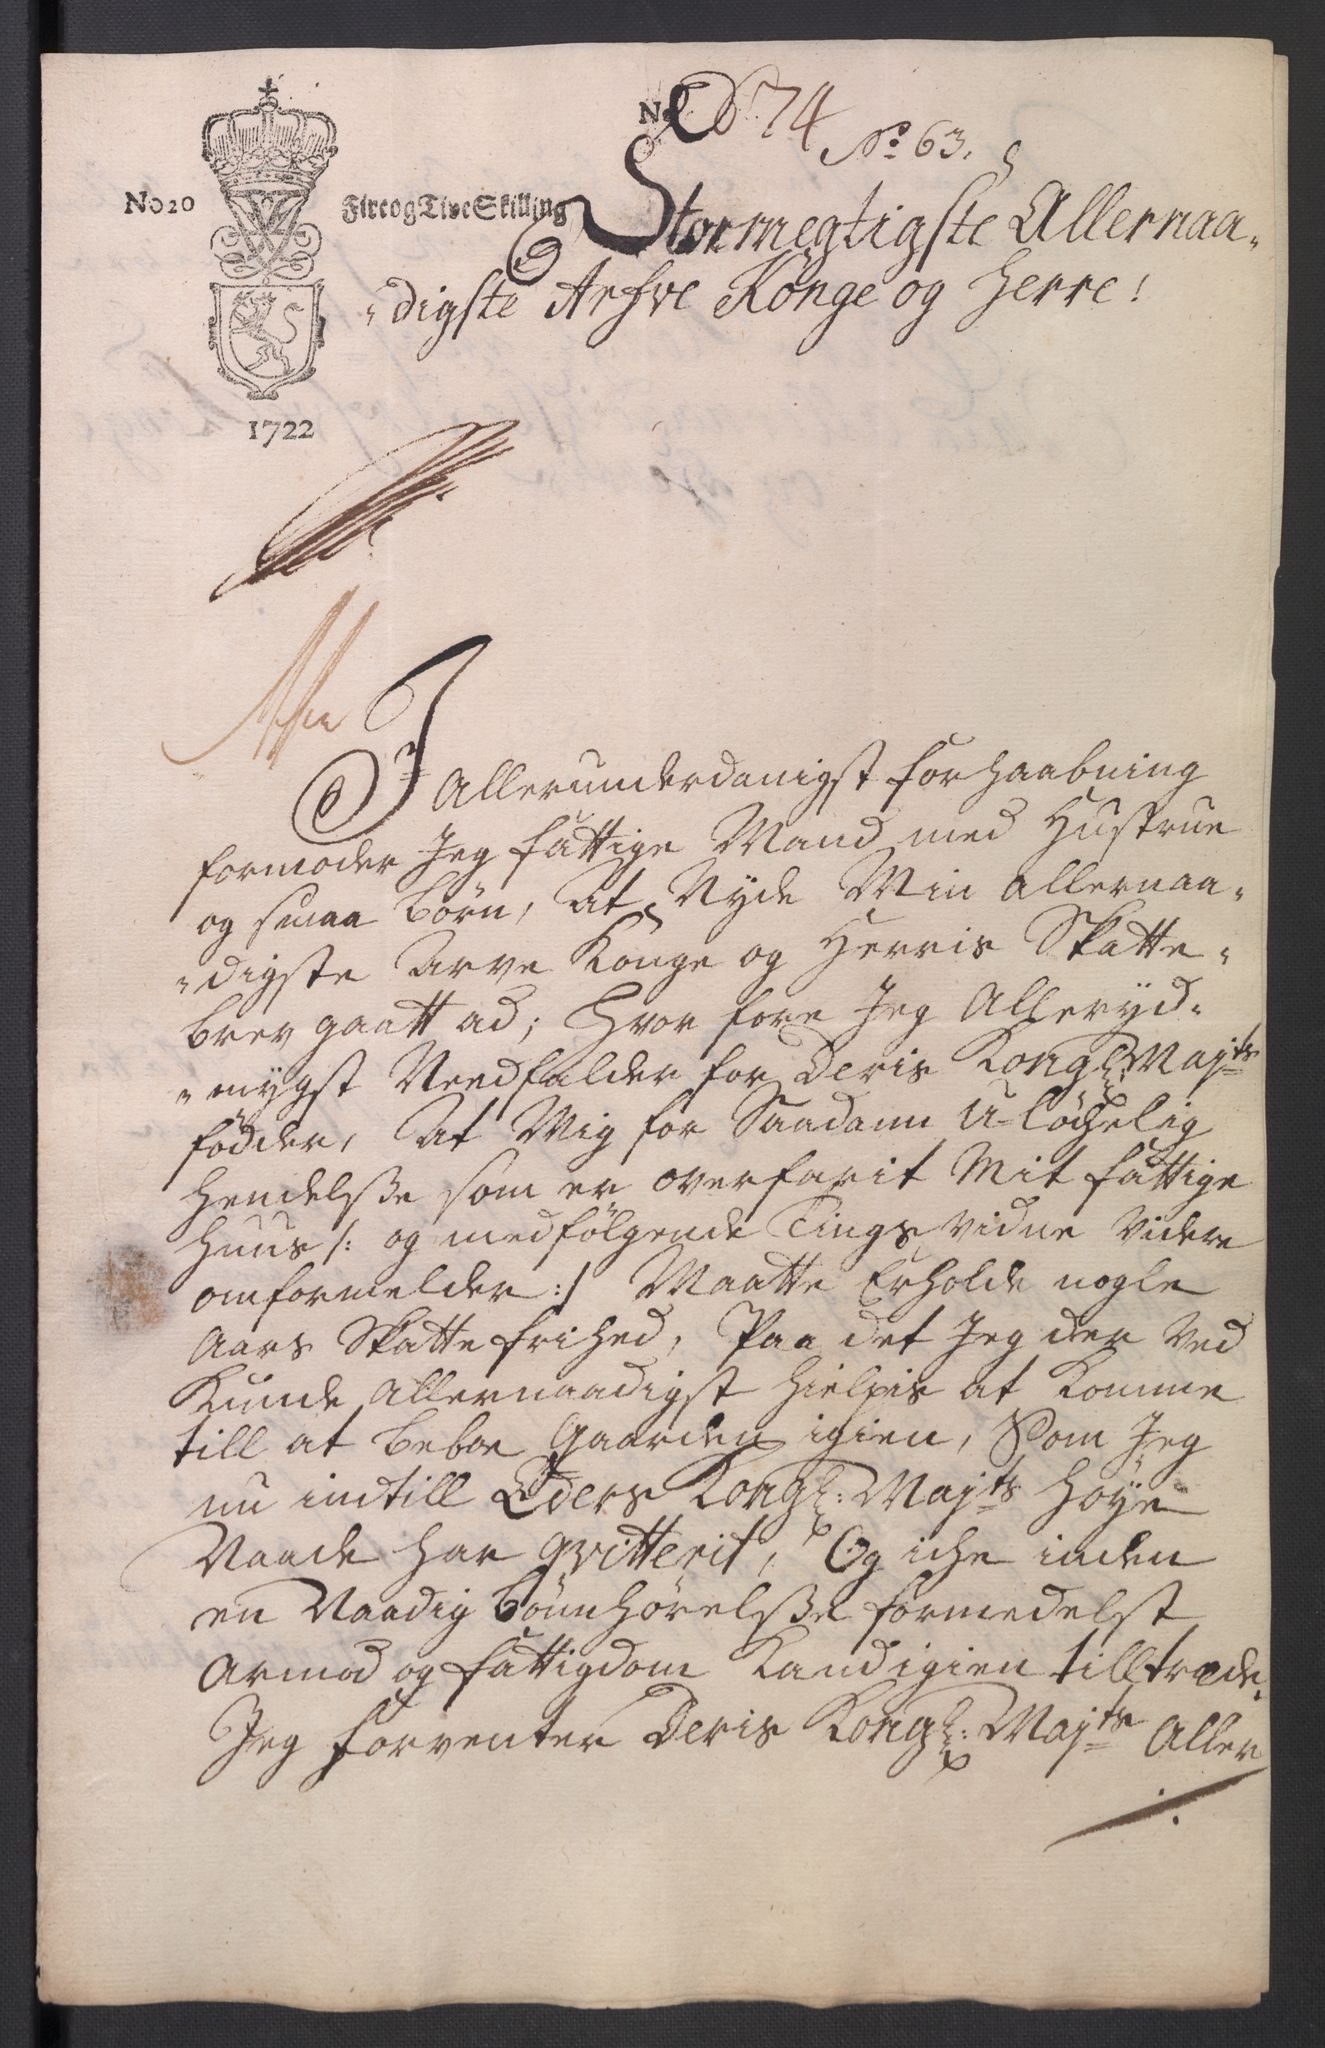 No 74
No. 63.
No 20
Fire og Tive Skilling
1722
Stormegtigste Allernaa-
-digste Arfve Konge og Herre!
I Allerunderdanigst forhaabning
formoder Jeg fattige Mand med Hustrue
og smaa børn, At Nyde Min allernaa-
-digste Arve Konge og Herris Skatte-
brev gaatt ad; Hvor fore Jeg Alleryd-
-mygst Needfalder for Deris Kongl: Majts
födder, At Mig for Saadann U-löchelig
Hendelsße som er overfarit Mit fattige
Huus /: og medfölgende Tings Vidne Videre
omformelder :/ Maatte Erholde nogle
Aars Skatte frihed, Paa det Jeg der Ved
Kunde Allernaadigst hielpis at Komme
till at beboe Gaarden igien, Som Jeg
nu indtill Eders Kongl: Majts Høye
Naade har qvitterit, Og iche inden
en Naadig bönnhörelsße formedelst
Armod og fattigdom Kand igien tilltræde.
Jeg forventer Deris Kongl: Majts Aller